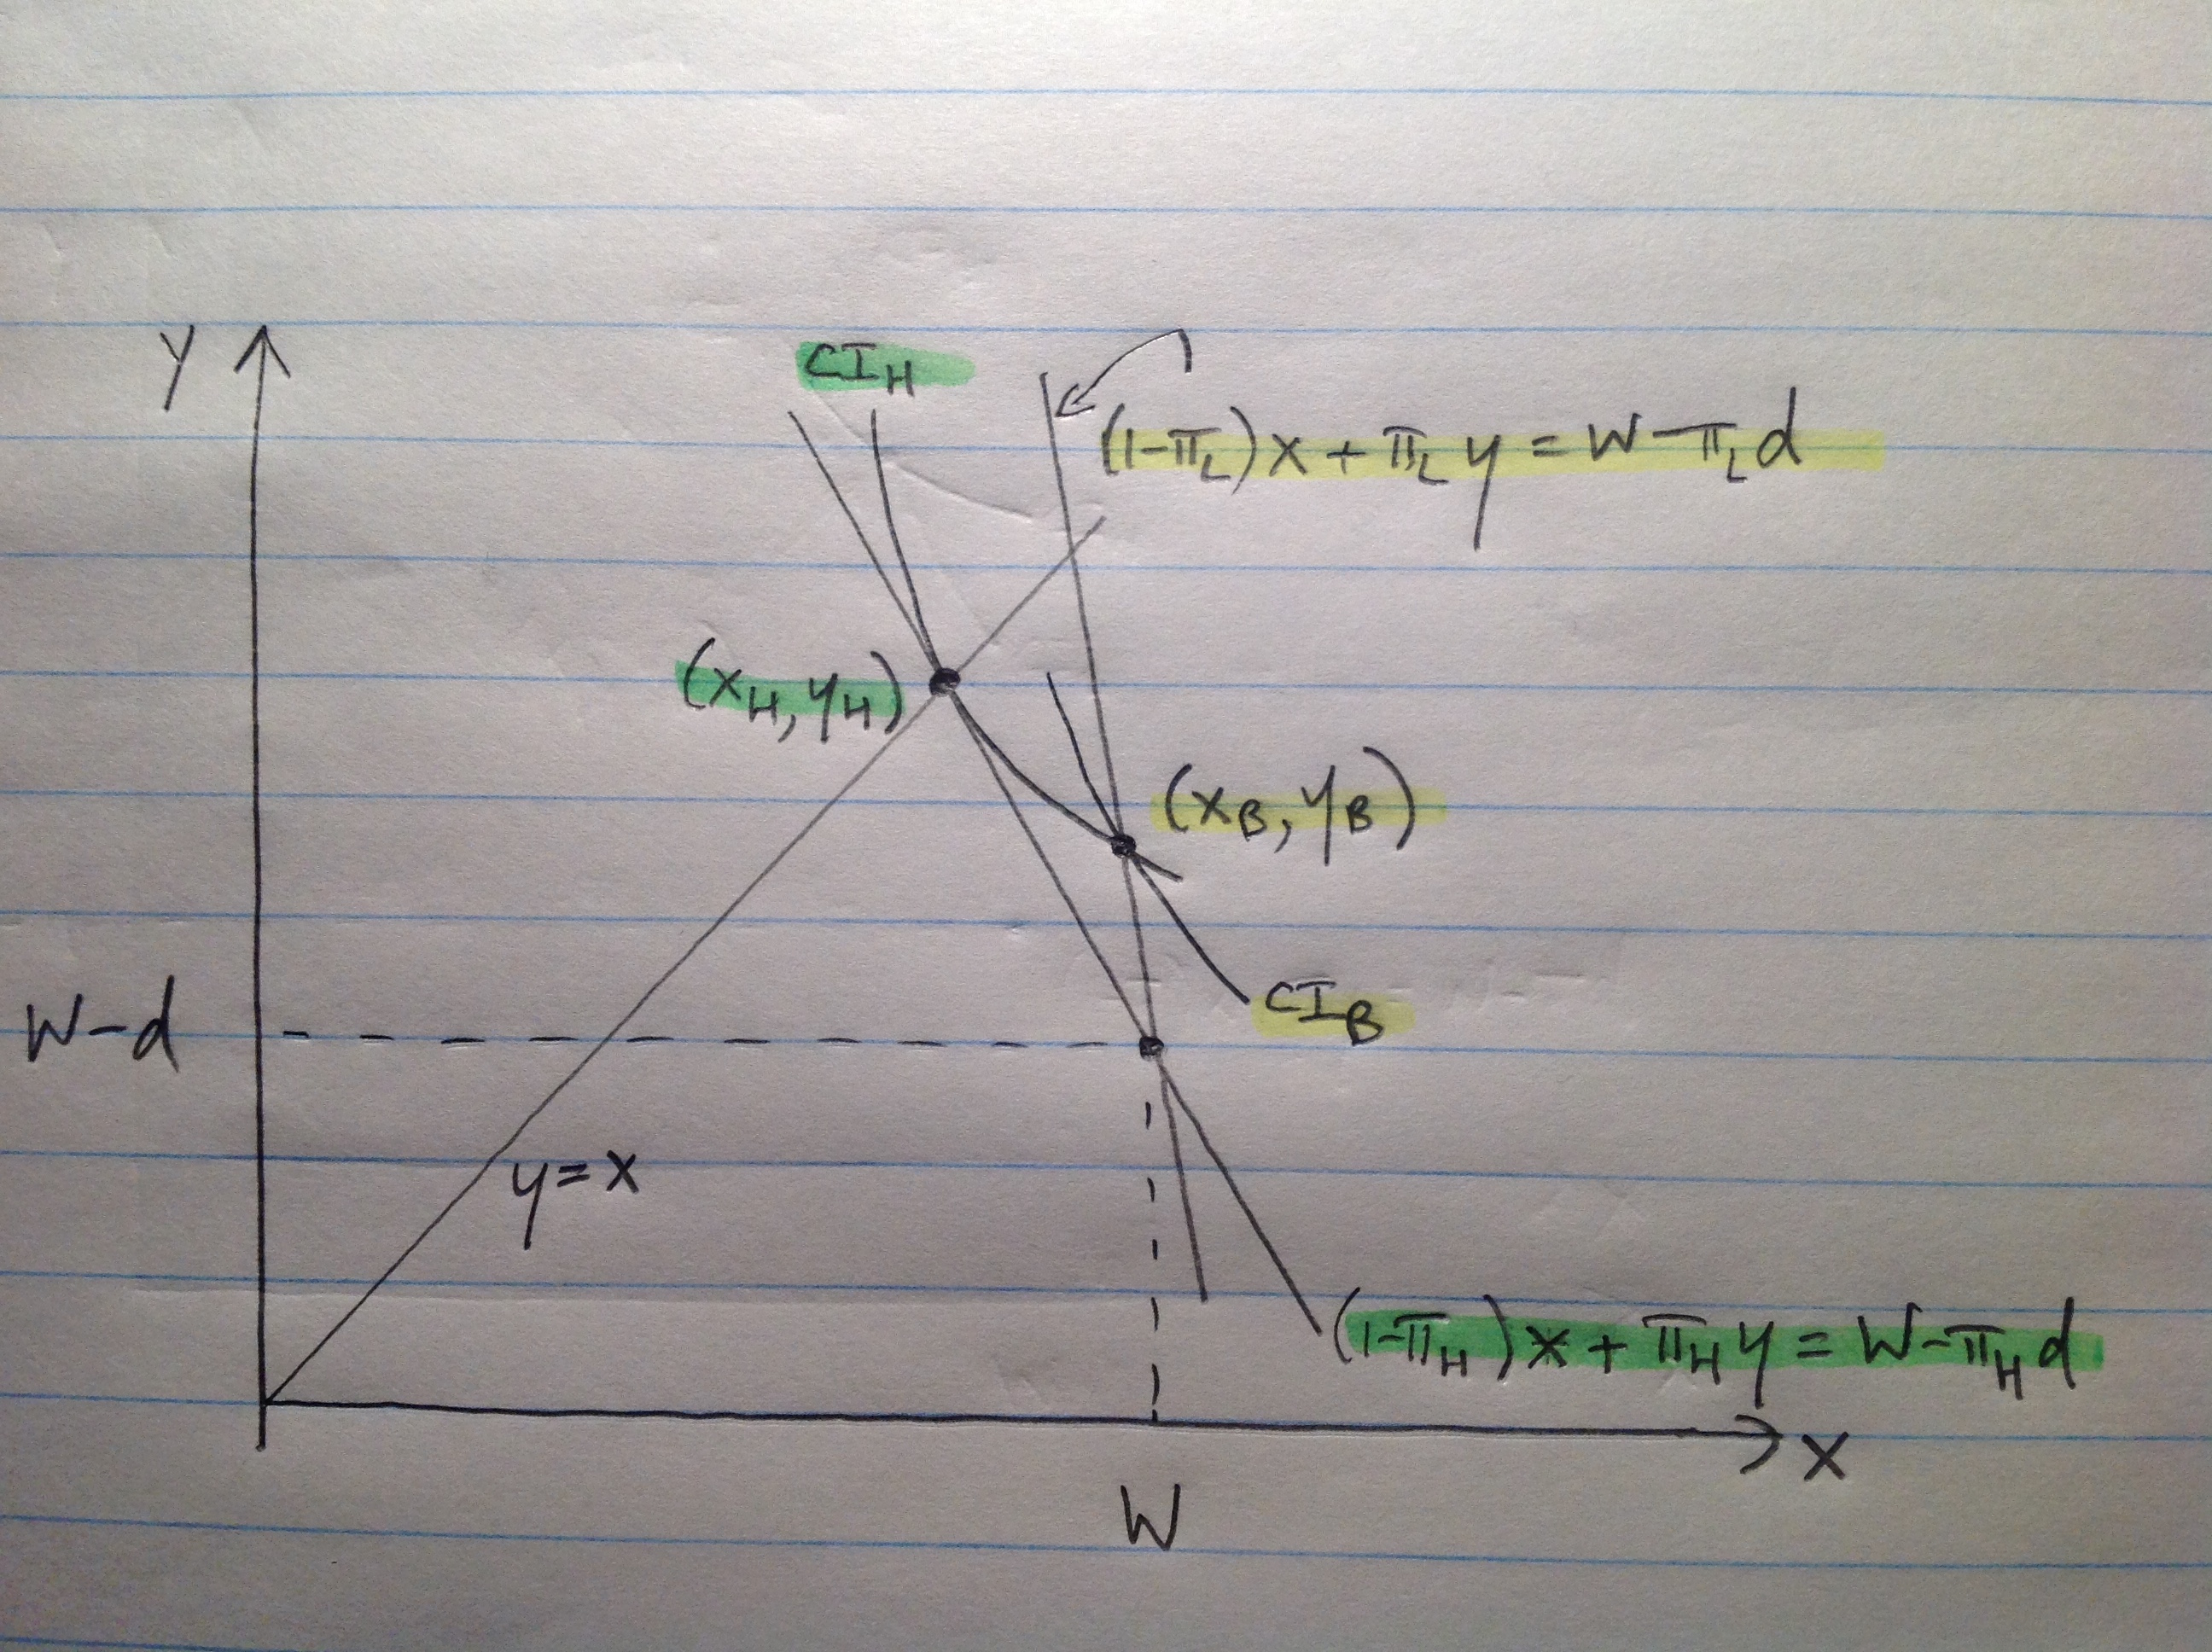 y
CI_H
(1-π_L)x + π_L y = W-π_L d
(x_H, y_H)
(x_B, y_B)
CI_B
W-d
y=x
(1-π_H)x + π_H y = W-π_H d
x
W